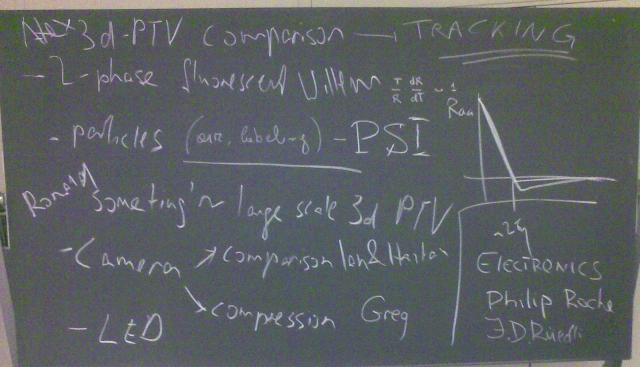 3d-PTV comparison → TRACKING
- 2-phase fluorescent Willem T/R dR/dT ~ 1
- particles (our, label-g) - PSI
Ronald Someting'n large scale 3d PTV
- Camera ↗ comparison & 
↘ compression Greg
- LED
Raa
ELECTRONICS
Philip Roche
J.D. Rüedli